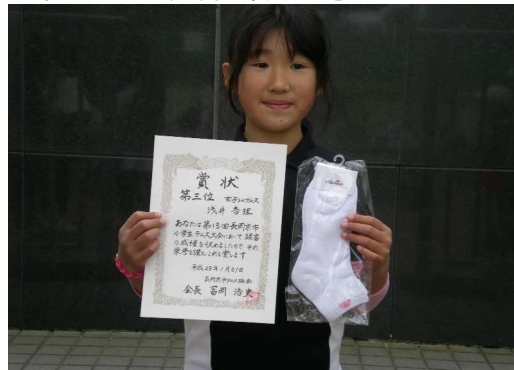 賞状
第三位 女子シングルス
浅井 杏理
あなたは第13回長岡京市
小学生テニス大会において頭書
の成績を収めましたので その
栄誉を讃え これを賞します
平成28年
長岡京市テニス協会
会長 冨岡 浩史